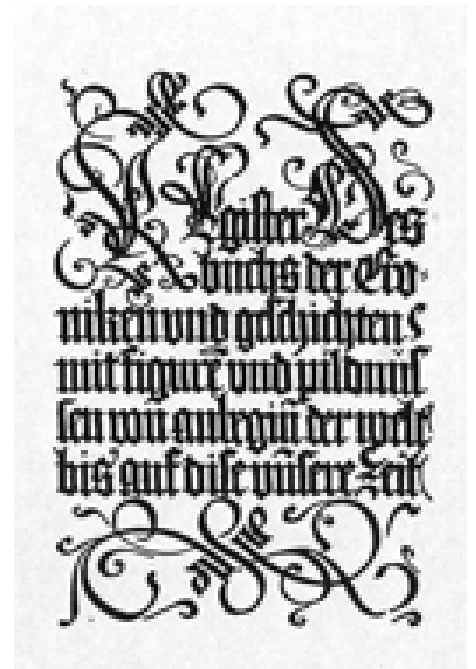 REgister Des
buchs der Cro-
niken und geschichten
mit figurẽ und pildnus
sen von anbegiñ der welt
bis auf dise uñsere Zeit